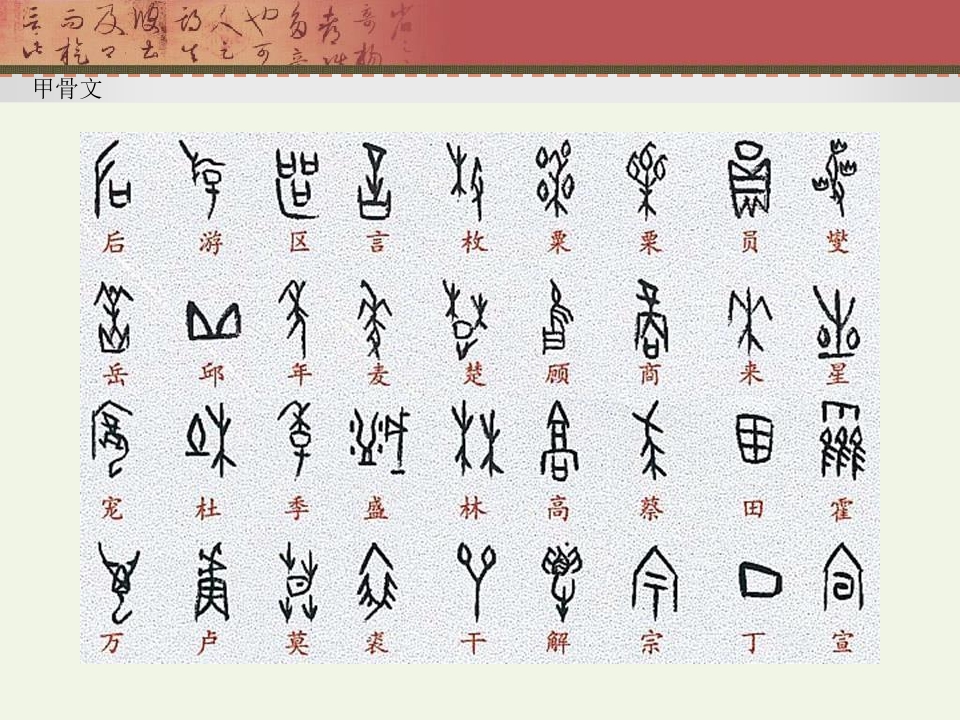 甲骨文
后 游 区 言 枚 粟 栗 员 燮
岳 邱 年 麦 楚 顾 商 来 星
宠 杜 季 盛 林 高 蔡 田 霍
万 卢 莫 裘 干 解 宗 丁 宣